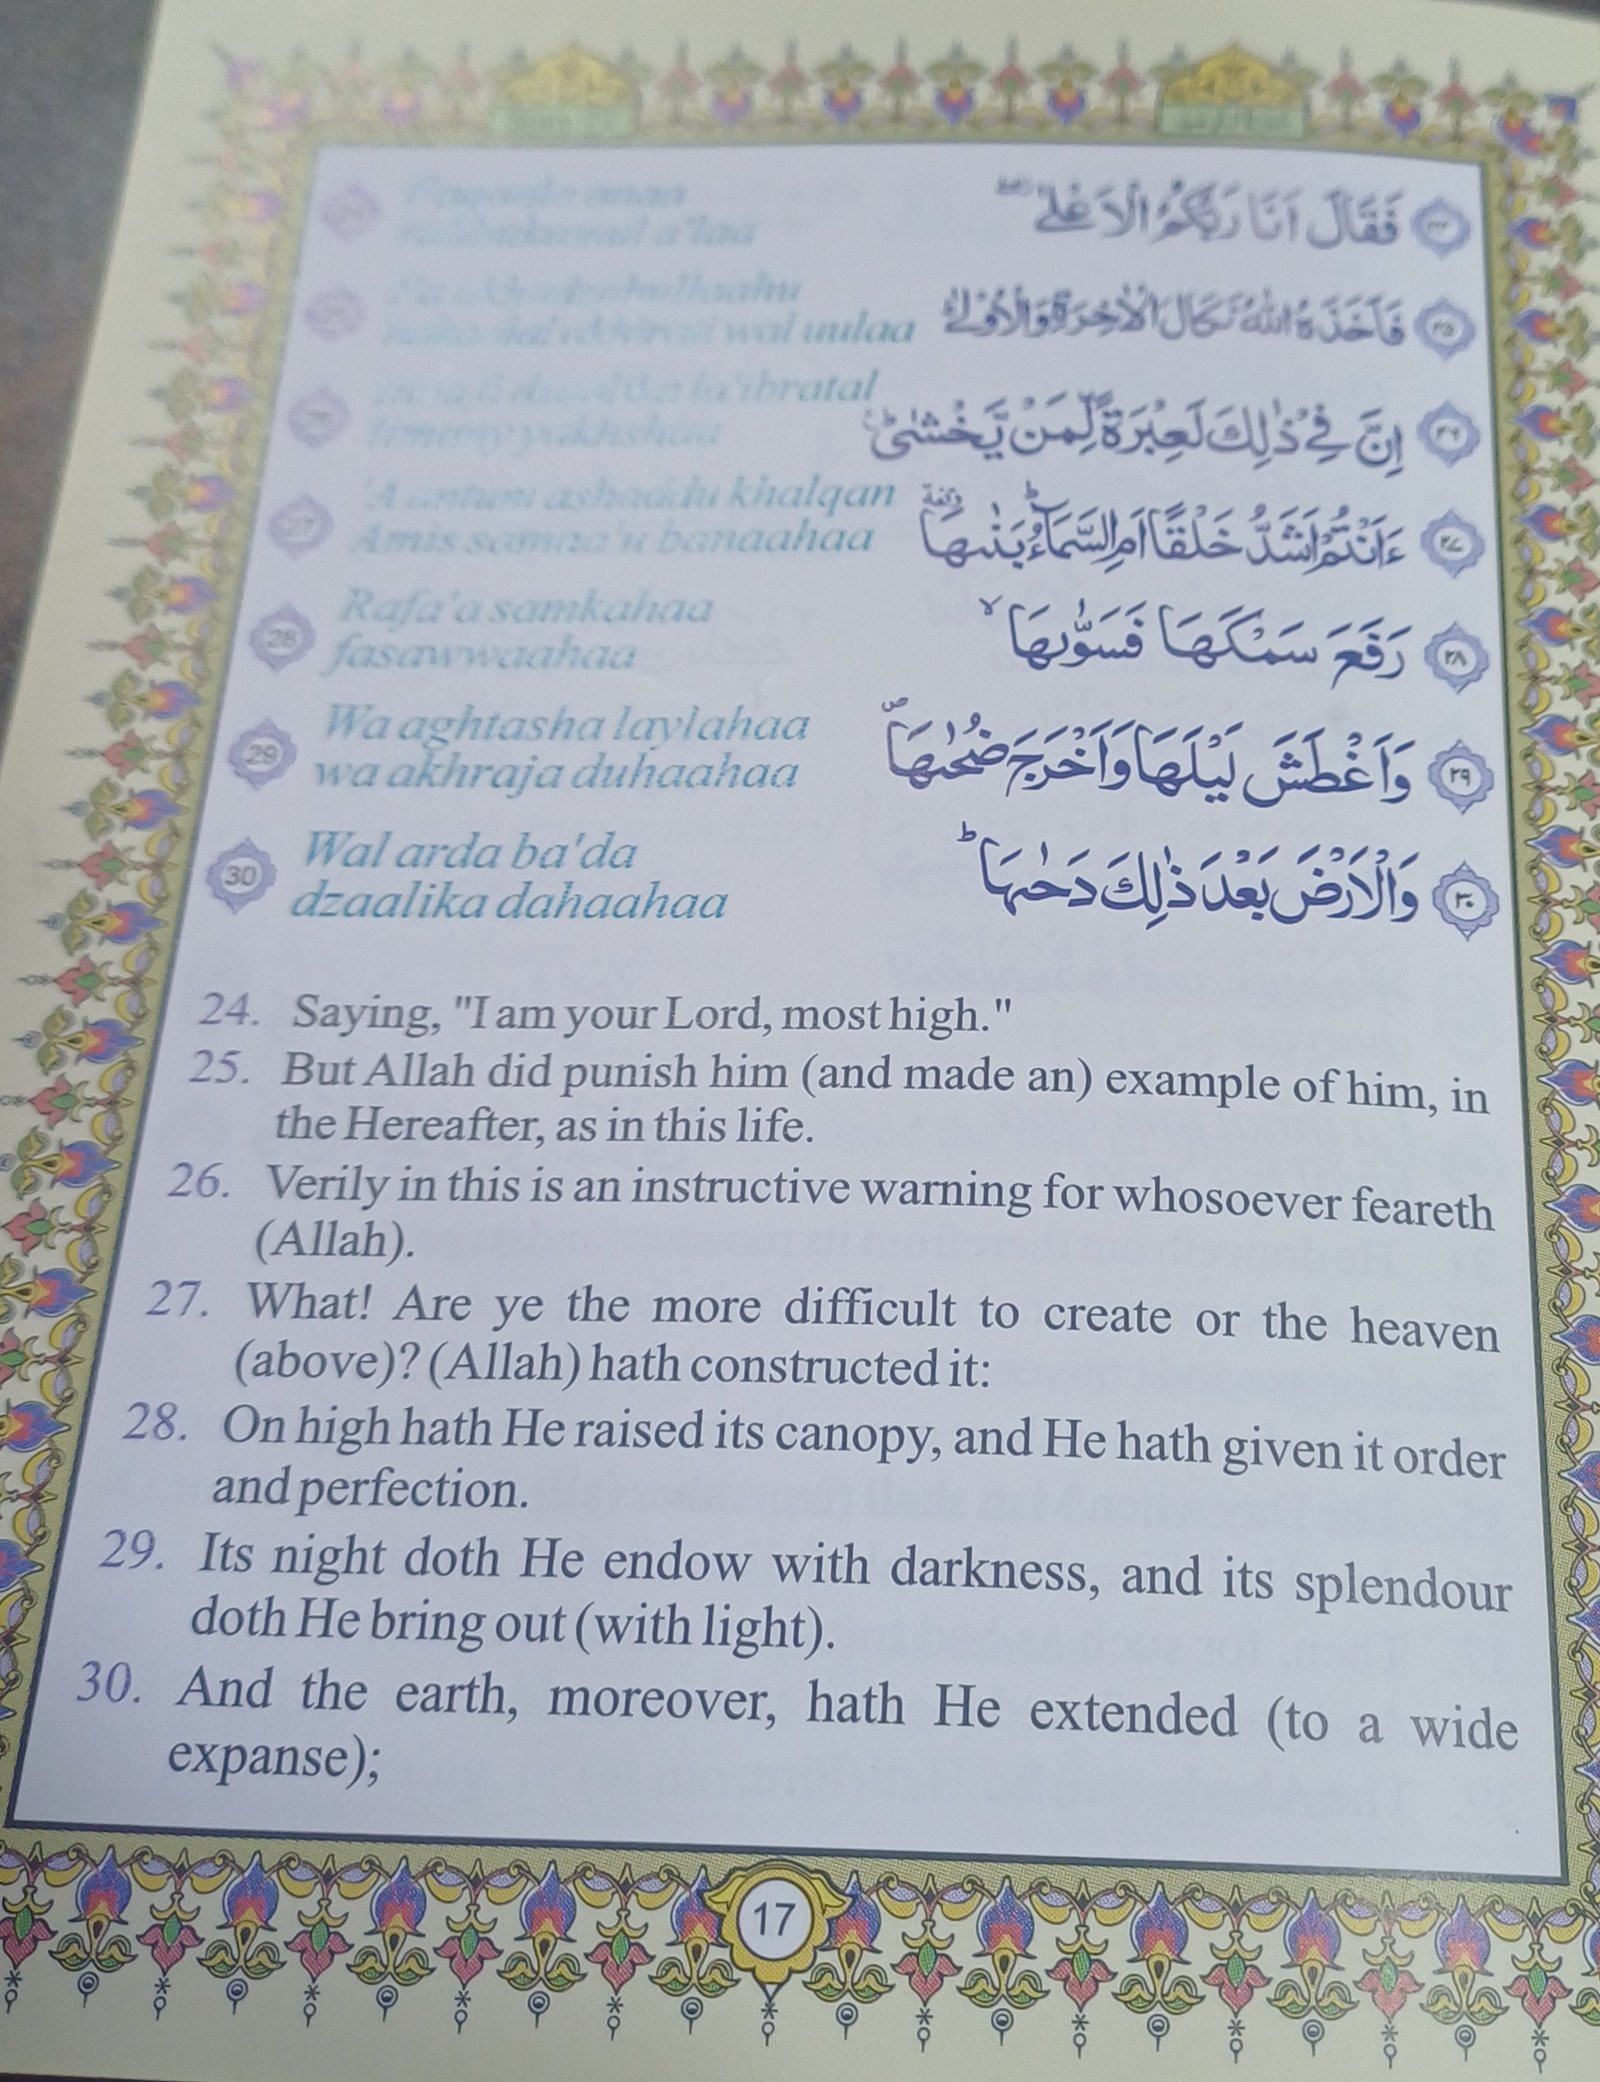 فَقَالَ اَنَا رَبُّكُمُ الْاَعْلٰى ٢٤
rabbukumul a'laa
فَاَخَذَهُ اللّٰهُ نَكَالَ الْاٰخِرَةِ وَالْاُوْلٰى ٢٥
wal uulaa
la'ibratal
اِنَّ فِيْ ذٰلِكَ لَعِبْرَةً لِّمَنْ يَّخْشٰى ٢٦
limany yakhshaa
27 'A antum ashaddu khalqan
Amis samaa'u banaahaa
ءَاَنْتُمْ اَشَدُّ خَلْقًا اَمِ السَّمَآءُ بَنٰىهَا ٢٧
28 Rafa'a samkahaa
fasawwaahaa
رَفَعَ سَمْكَهَا فَسَوّٰىهَا ٢٨
29 Wa aghtasha laylahaa
wa akhraja duhaahaa
وَاَغْطَشَ لَيْلَهَا وَاَخْرَجَ ضُحٰىهَا ٢٩
30 Wal arda ba'da
dzaalika dahaahaa
وَالْاَرْضَ بَعْدَ ذٰلِكَ دَحٰىهَا ٣٠
24. Saying, "I am your Lord, most high."
25. But Allah did punish him (and made an) example of him, in
the Hereafter, as in this life.
26. Verily in this is an instructive warning for whosoever feareth
(Allah).
27. What! Are ye the more difficult to create or the heaven
(above)? (Allah) hath constructed it:
28. On high hath He raised its canopy, and He hath given it order
and perfection.
29. Its night doth He endow with darkness, and its splendour
doth He bring out (with light).
30. And the earth, moreover, hath He extended (to a wide
expanse);
17